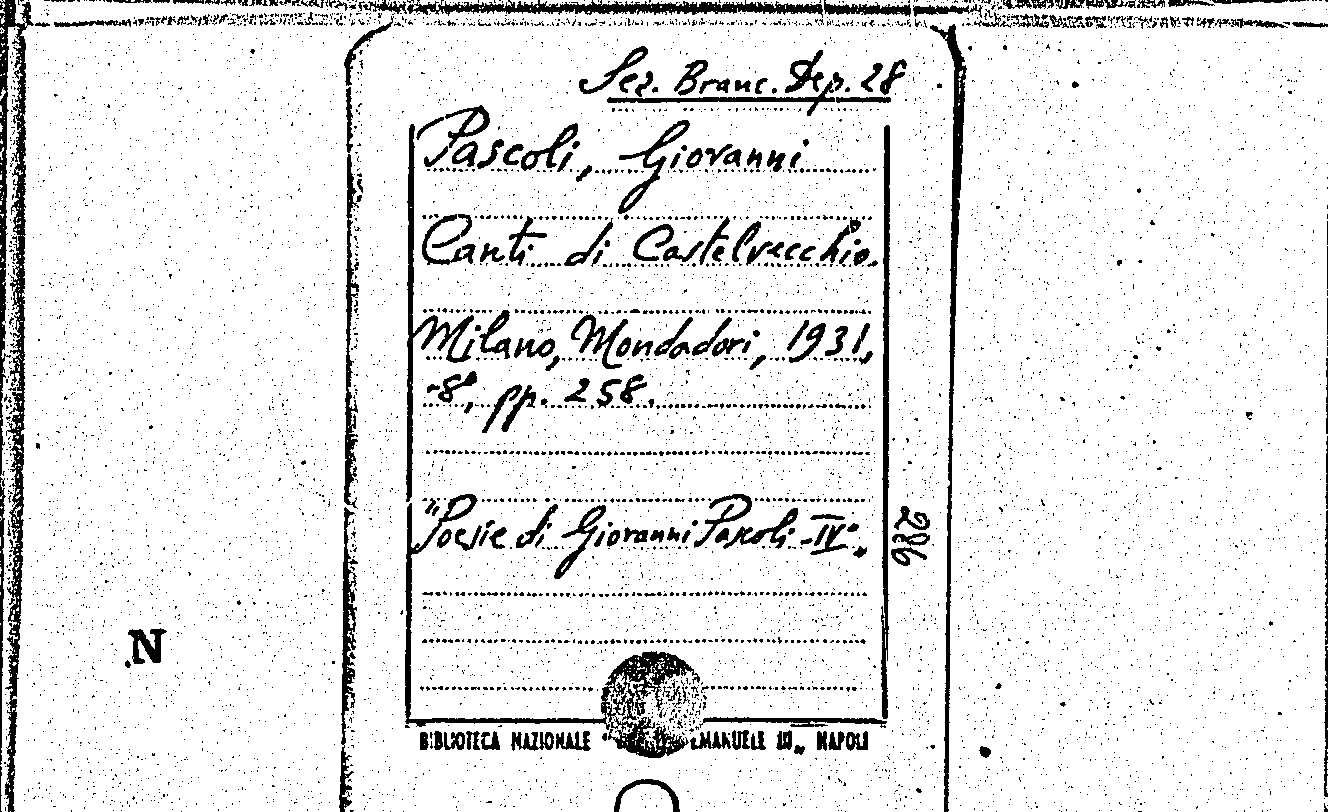 Sez. Branc. Dep. 28
Pascoli, Giovanni
Canti di Castelvecchio.
Milano, Mondadori, 1931,
-8°, pp. 258.
"Poesie di Giovanni Pascoli - IV°„
286
N
BIBLIOTECA NAZIONALE " EMANUELE III„ NAPOLI